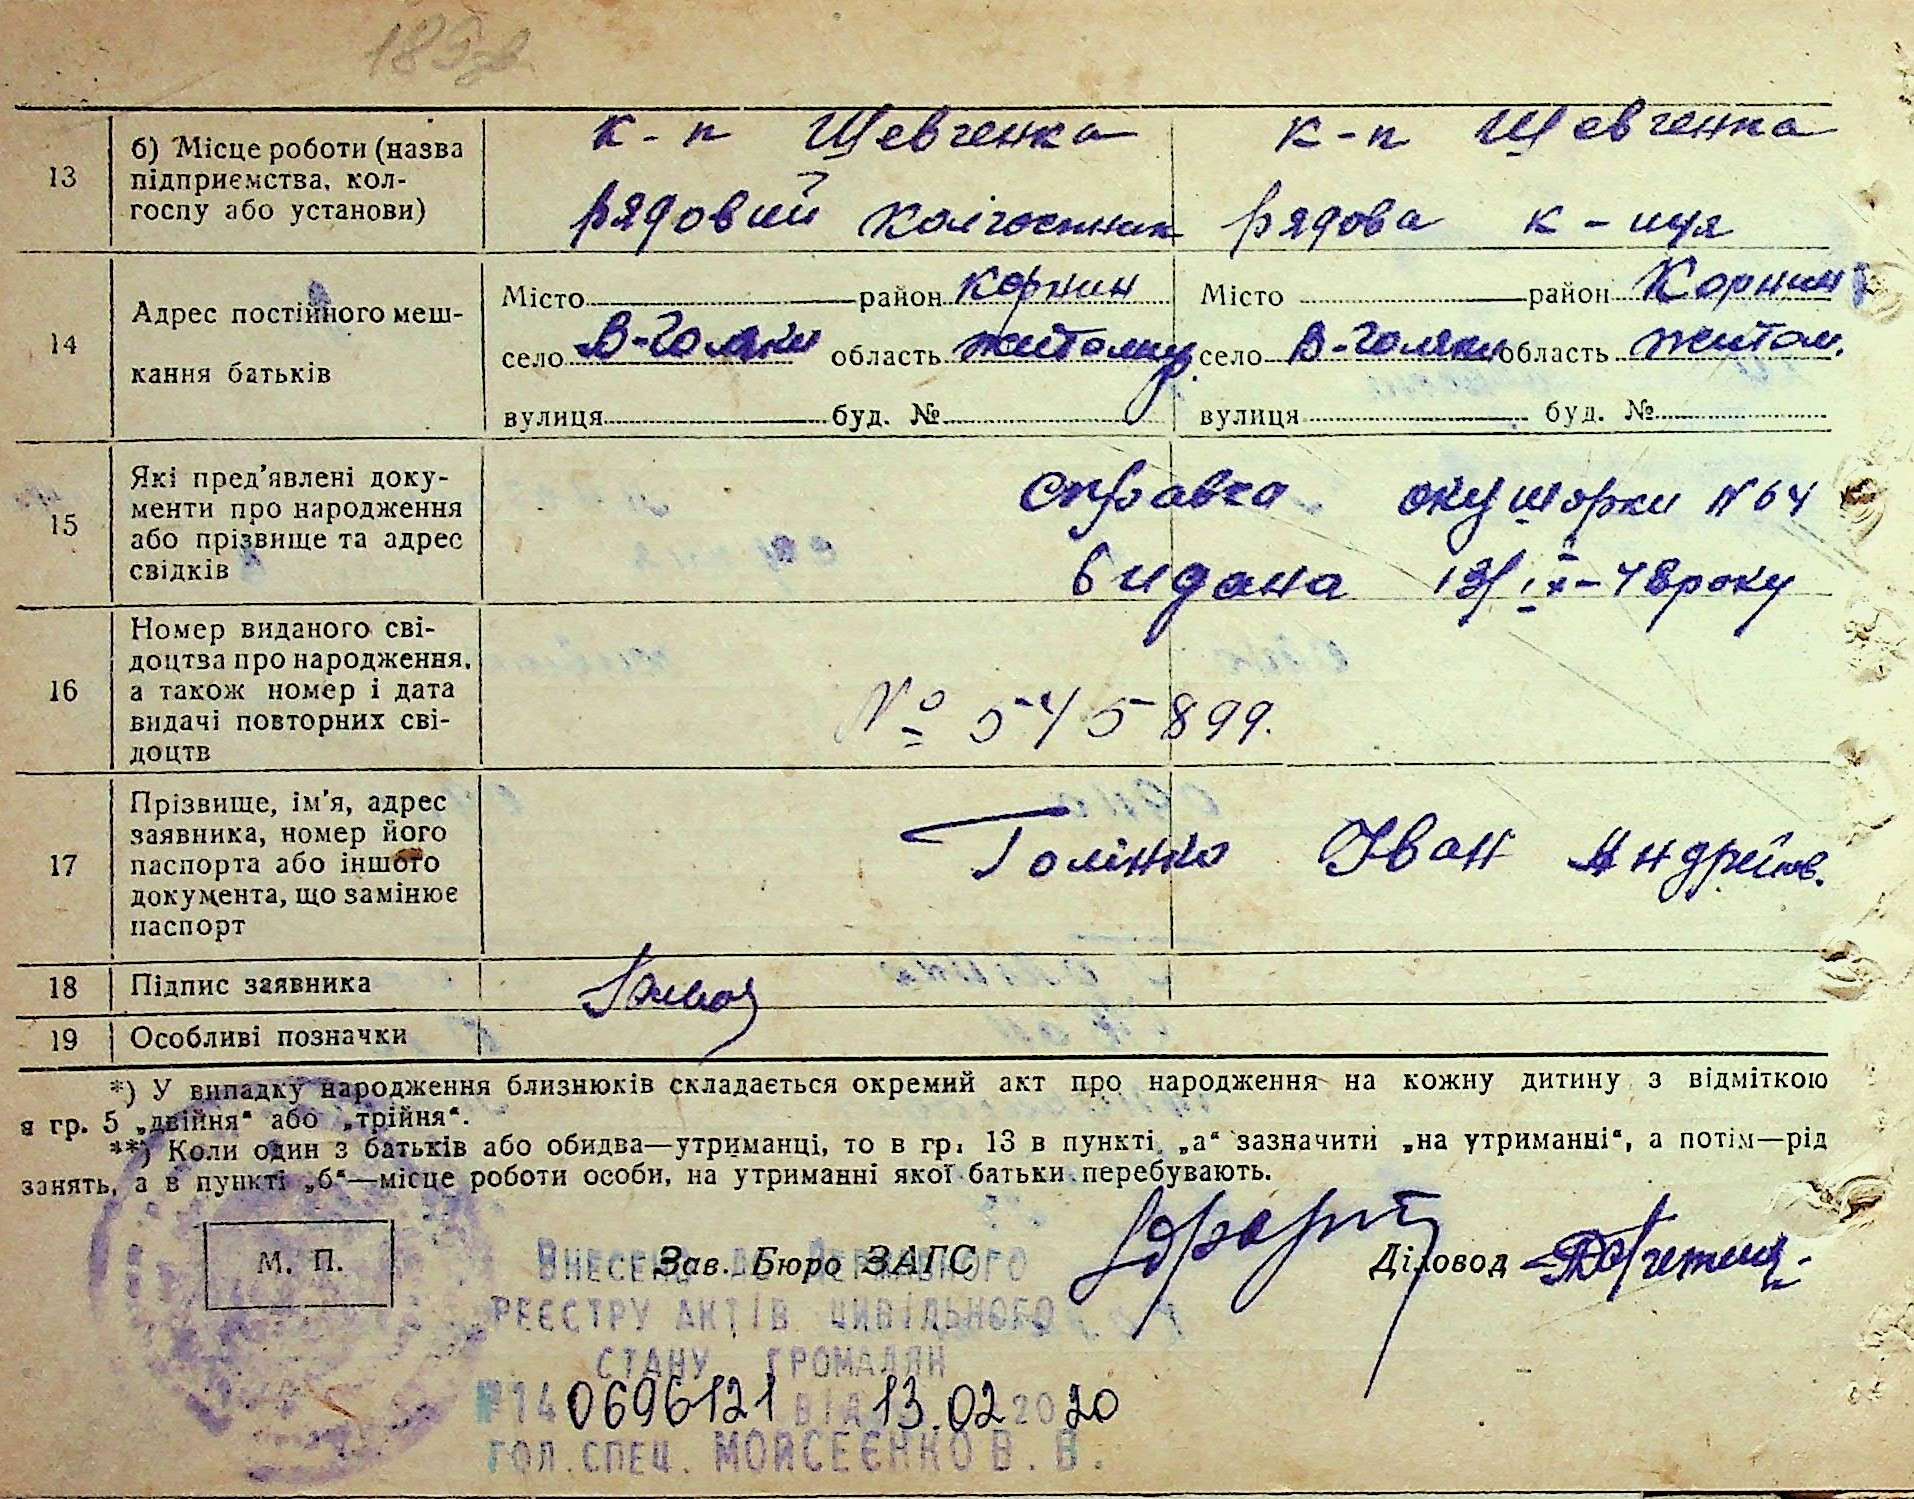 183 зв.
13 б) Місце роботи (назва підприємства, колгоспу або установи)
к-п Шевченка к-п Шевченка
рядовий колгоспник рядова к-иця
14 Адрес постійного мешкання батьків
Місто район Корнин Місто район Корнин
село В-Голяки область Житомир. село В-Голяки область Житом.
вулиця буд. № вулиця буд. №
15 Які пред'явлені документи про народження або прізвище та адрес свідків
справка окушорки N 64
видана 13/ІХ-48 року
16 Номер виданого свідоцтва про народження, а також номер і дата видачі повторних свідоцтв
№ 545899.
17 Прізвище, ім'я, адрес заявника, номер його паспорта або іншого документа, що замінює паспорт
Голінко Іван Андрейов.
18 Підпис заявника
19 Особливі позначки
*) У випадку народження близнюків складається окремий акт про народження на кожну дитину з відміткою
в гр. 5 „двійня“ або „трійня“.
**) Коли один з батьків або обидва—утриманці, то в гр. 13 в пункті „а“ зазначити „на утриманні“, а потім—рід
занять, а в пункті „б“—місце роботи особи, на утриманні якої батьки перебувають.
М. П. Зав. Бюро ЗАГС Діловод
Внесено до Державного
реєстру актів цивільного
стану громадян
№140696121 від 13.02 2020
гол. спец. Мойсеєнко В. В.